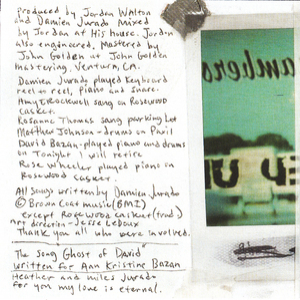 Produced by Jordan Walton
and Damien Jurado Mixed
by Jordan at His House. Jordan
also engineered. Mastered by
John Golden at John Golden
Mastering. Ventura, CA.
Damien Jurado played Keyboard
reel to reel, piano and snare.
Amy Rockwell sang on Rosewood
Casket.
Rosanne Thomas sang parking lot
Matthew Johnson - drums on Paxil
David Bazan - played piano and drums
on Tonight I will retire
Rose played piano on
Rosewood Casket.
All Songs written by Damien Jurado
© Brown Coat music (BMI)
except Rosewood casket (trad.)
Art direction - Jesse LeDoux
Thank you all who were involved.
The song "Ghost of David"
written for Ann Kristine Bazan
Heather and miles Jurado
For you my love is eternal.